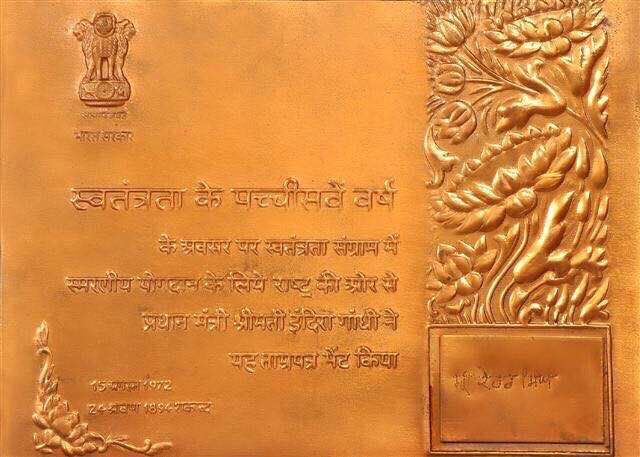 सत्यमेव जयते
भारत सरकार
स्वतंत्रता के पच्चीसवें वर्ष
के अवसर पर स्वतंत्रता संग्राम में
स्मरणीय योगदान के लिये राष्ट्र की ओर से
प्रधान मंत्री श्रीमती इंदिरा गांधी ने
यह ताम्रपत्र भेंट किया
15 अगस्त 1972
24 श्रावण 1894 शकाब्द
श्री